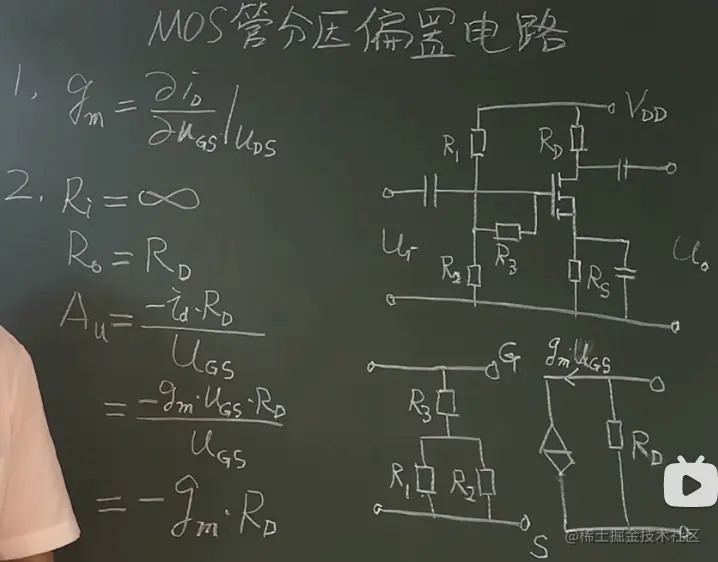 MOS管分压偏置电路
1. gm = ∂iD / ∂uGS | UDS
2. Ri = ∞
Ro = RD
Au = -id·RD / UGS
= -gm·UGS·RD / UGS
= -gm·RD
VDD
R1
RD
R3
R2
RS
Ui
Uo
G
gmUGS
R3
R1
R2
RD
S
@稀土掘金技术社区